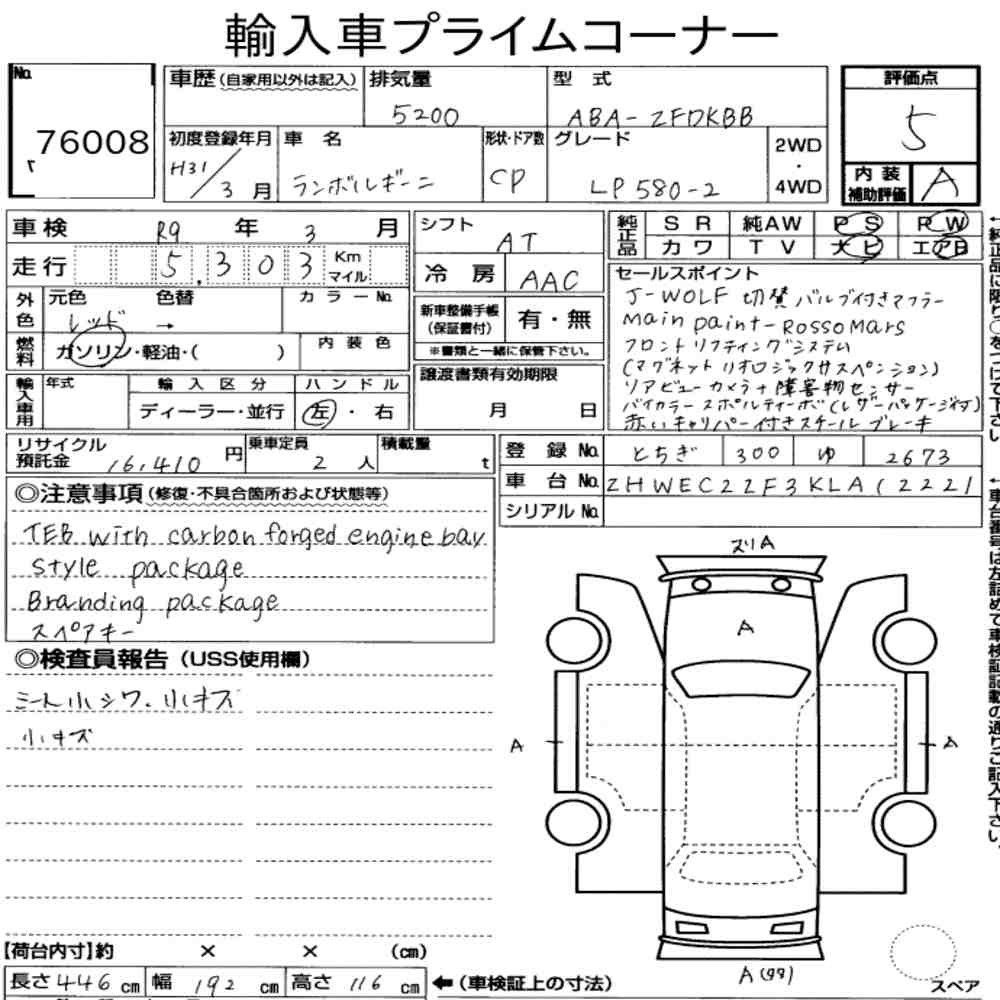 輸入車プライムコーナー
No. 76008
車歴(自家用以外は記入) 排気量 5200 型式 ABA-ZFDKBB
初度登録年月 H31/3月 車名 ランボルギーニ 形状・ドア数 CP グレード LP580-2 2WD・4WD
評価点 5
内装補助評価 A
車検 R9年3月
走行 5,303 Km マイル
シフト AT
冷房 AAC
純正品 SR 純AW PS PW
カワ TV 大ビ エアB
外色 元色 レッド 色替 → カラーNo.
燃料 ガソリン・軽油・( ) 内装色
新車整備手帳(保証書付) 有・無
※書類と一緒に保管下さい。
輸入車用 年式 輸入区分 ディーラー・並行 ハンドル 左・右
譲渡書類有効期限 月 日
セールスポイント
J-WOLF 切替バルブ付きマフラー
Main paint-Rosso Mars
フロントリフティングシステム
(マグネットリオロジックサスペンション)
リアビューカメラ+障害物センサー
バイカラースポルティーボ(レザーパッケージ付)
赤いキャリパー付きスチールブレーキ
リサイクル預託金 16,410円 乗車定員 2人 積載量 t
登録No. とちぎ 300 ゆ 2673
車台No. ZHWEC2ZF3KLA12221
シリアルNo.
◎注意事項(修復・不具合箇所および状態等)
TEB with carbon forged engine bay
Style package
Branding package
スペアキー
◎検査員報告(USS使用欄)
シート小シワ、小キズ
小キズ
スリA
A
A
A
A(タタ)
スペア
【荷台内寸】約 × × (cm)
長さ446cm 幅192cm 高さ116cm ←(車検証上の寸法)
←純正品に限り○をつけて下さい。
←車台番号は左詰めで車検証記載の通りご記入下さい。